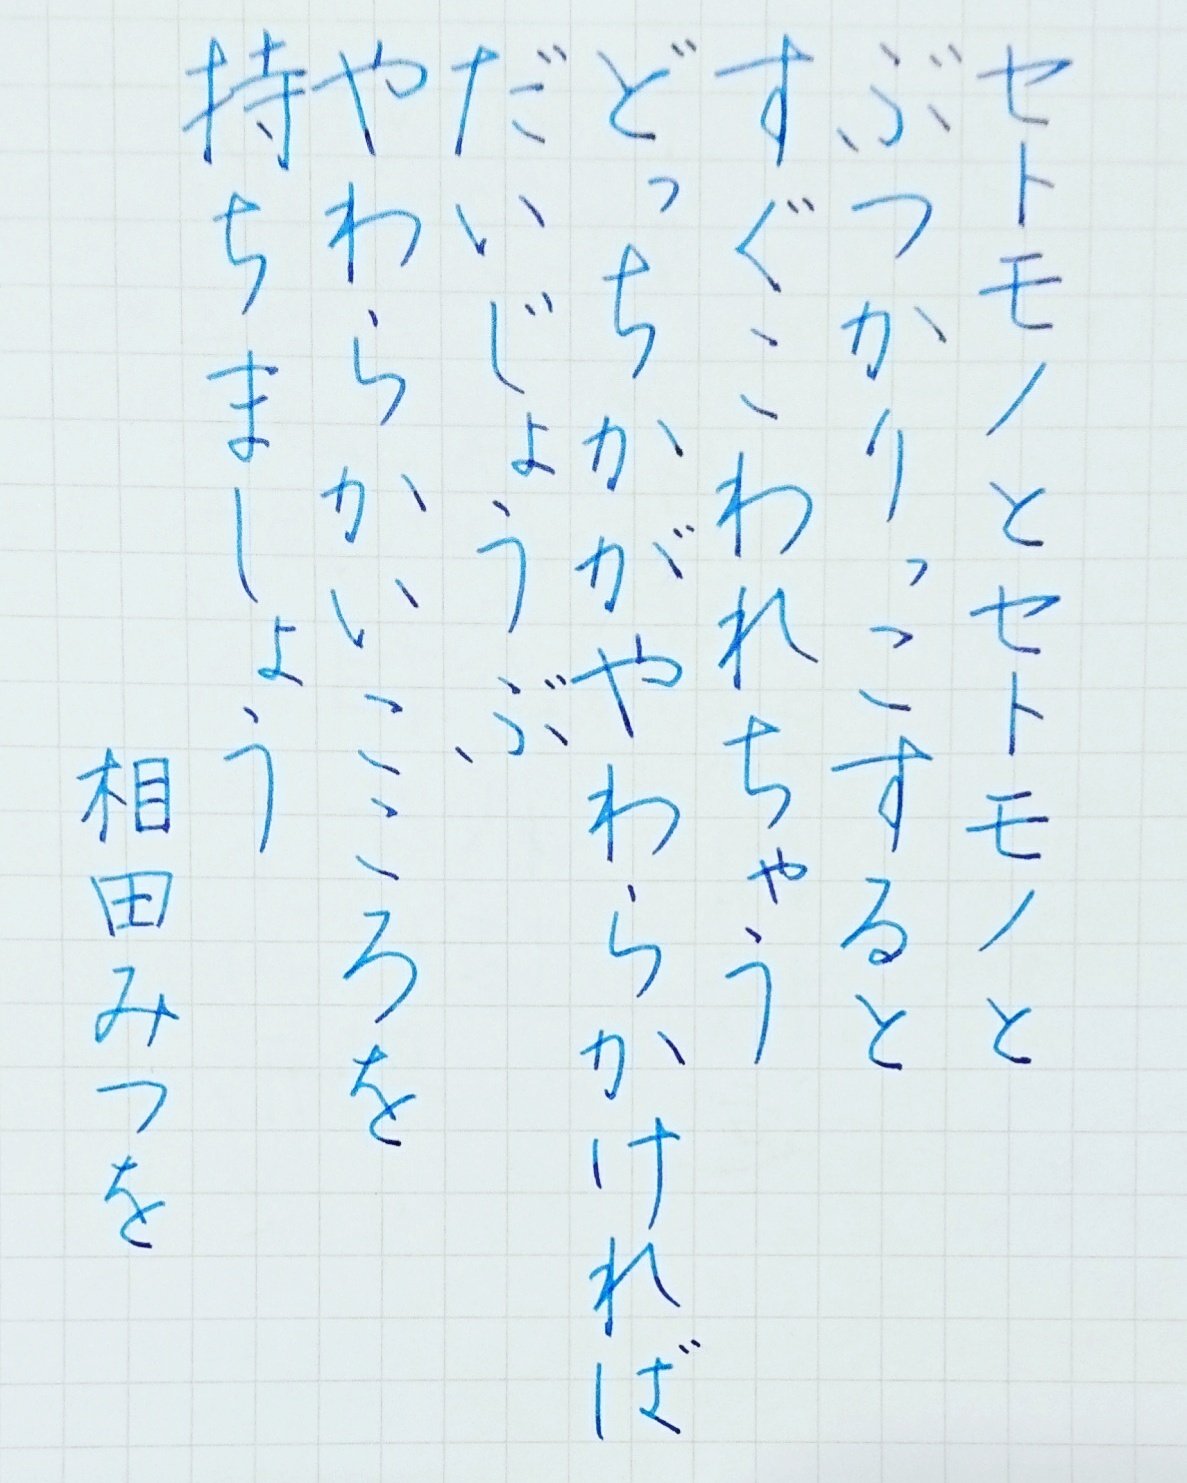 セトモノとセトモノと
ぶつかりっこすると
すぐこわれちゃう
どっちかがやわらかければ
だいじょうぶ
やわらかいこころを
持ちましょう
相田みつを